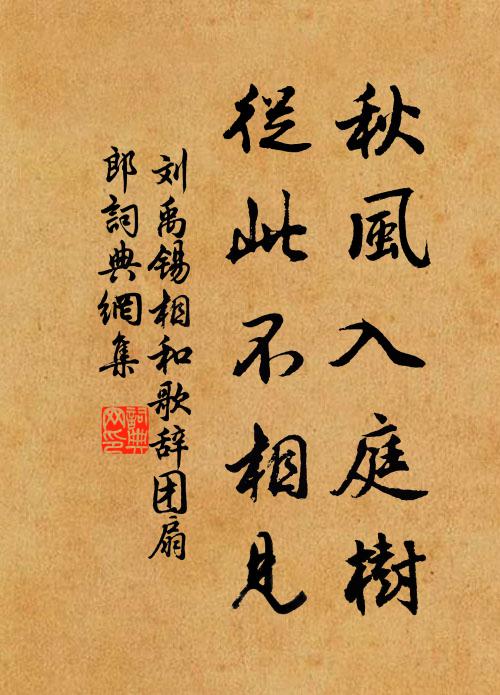 秋風入庭樹
從此不相見
刘禹锡相和歌辞团扇
郎詞典網集
詞典
网印